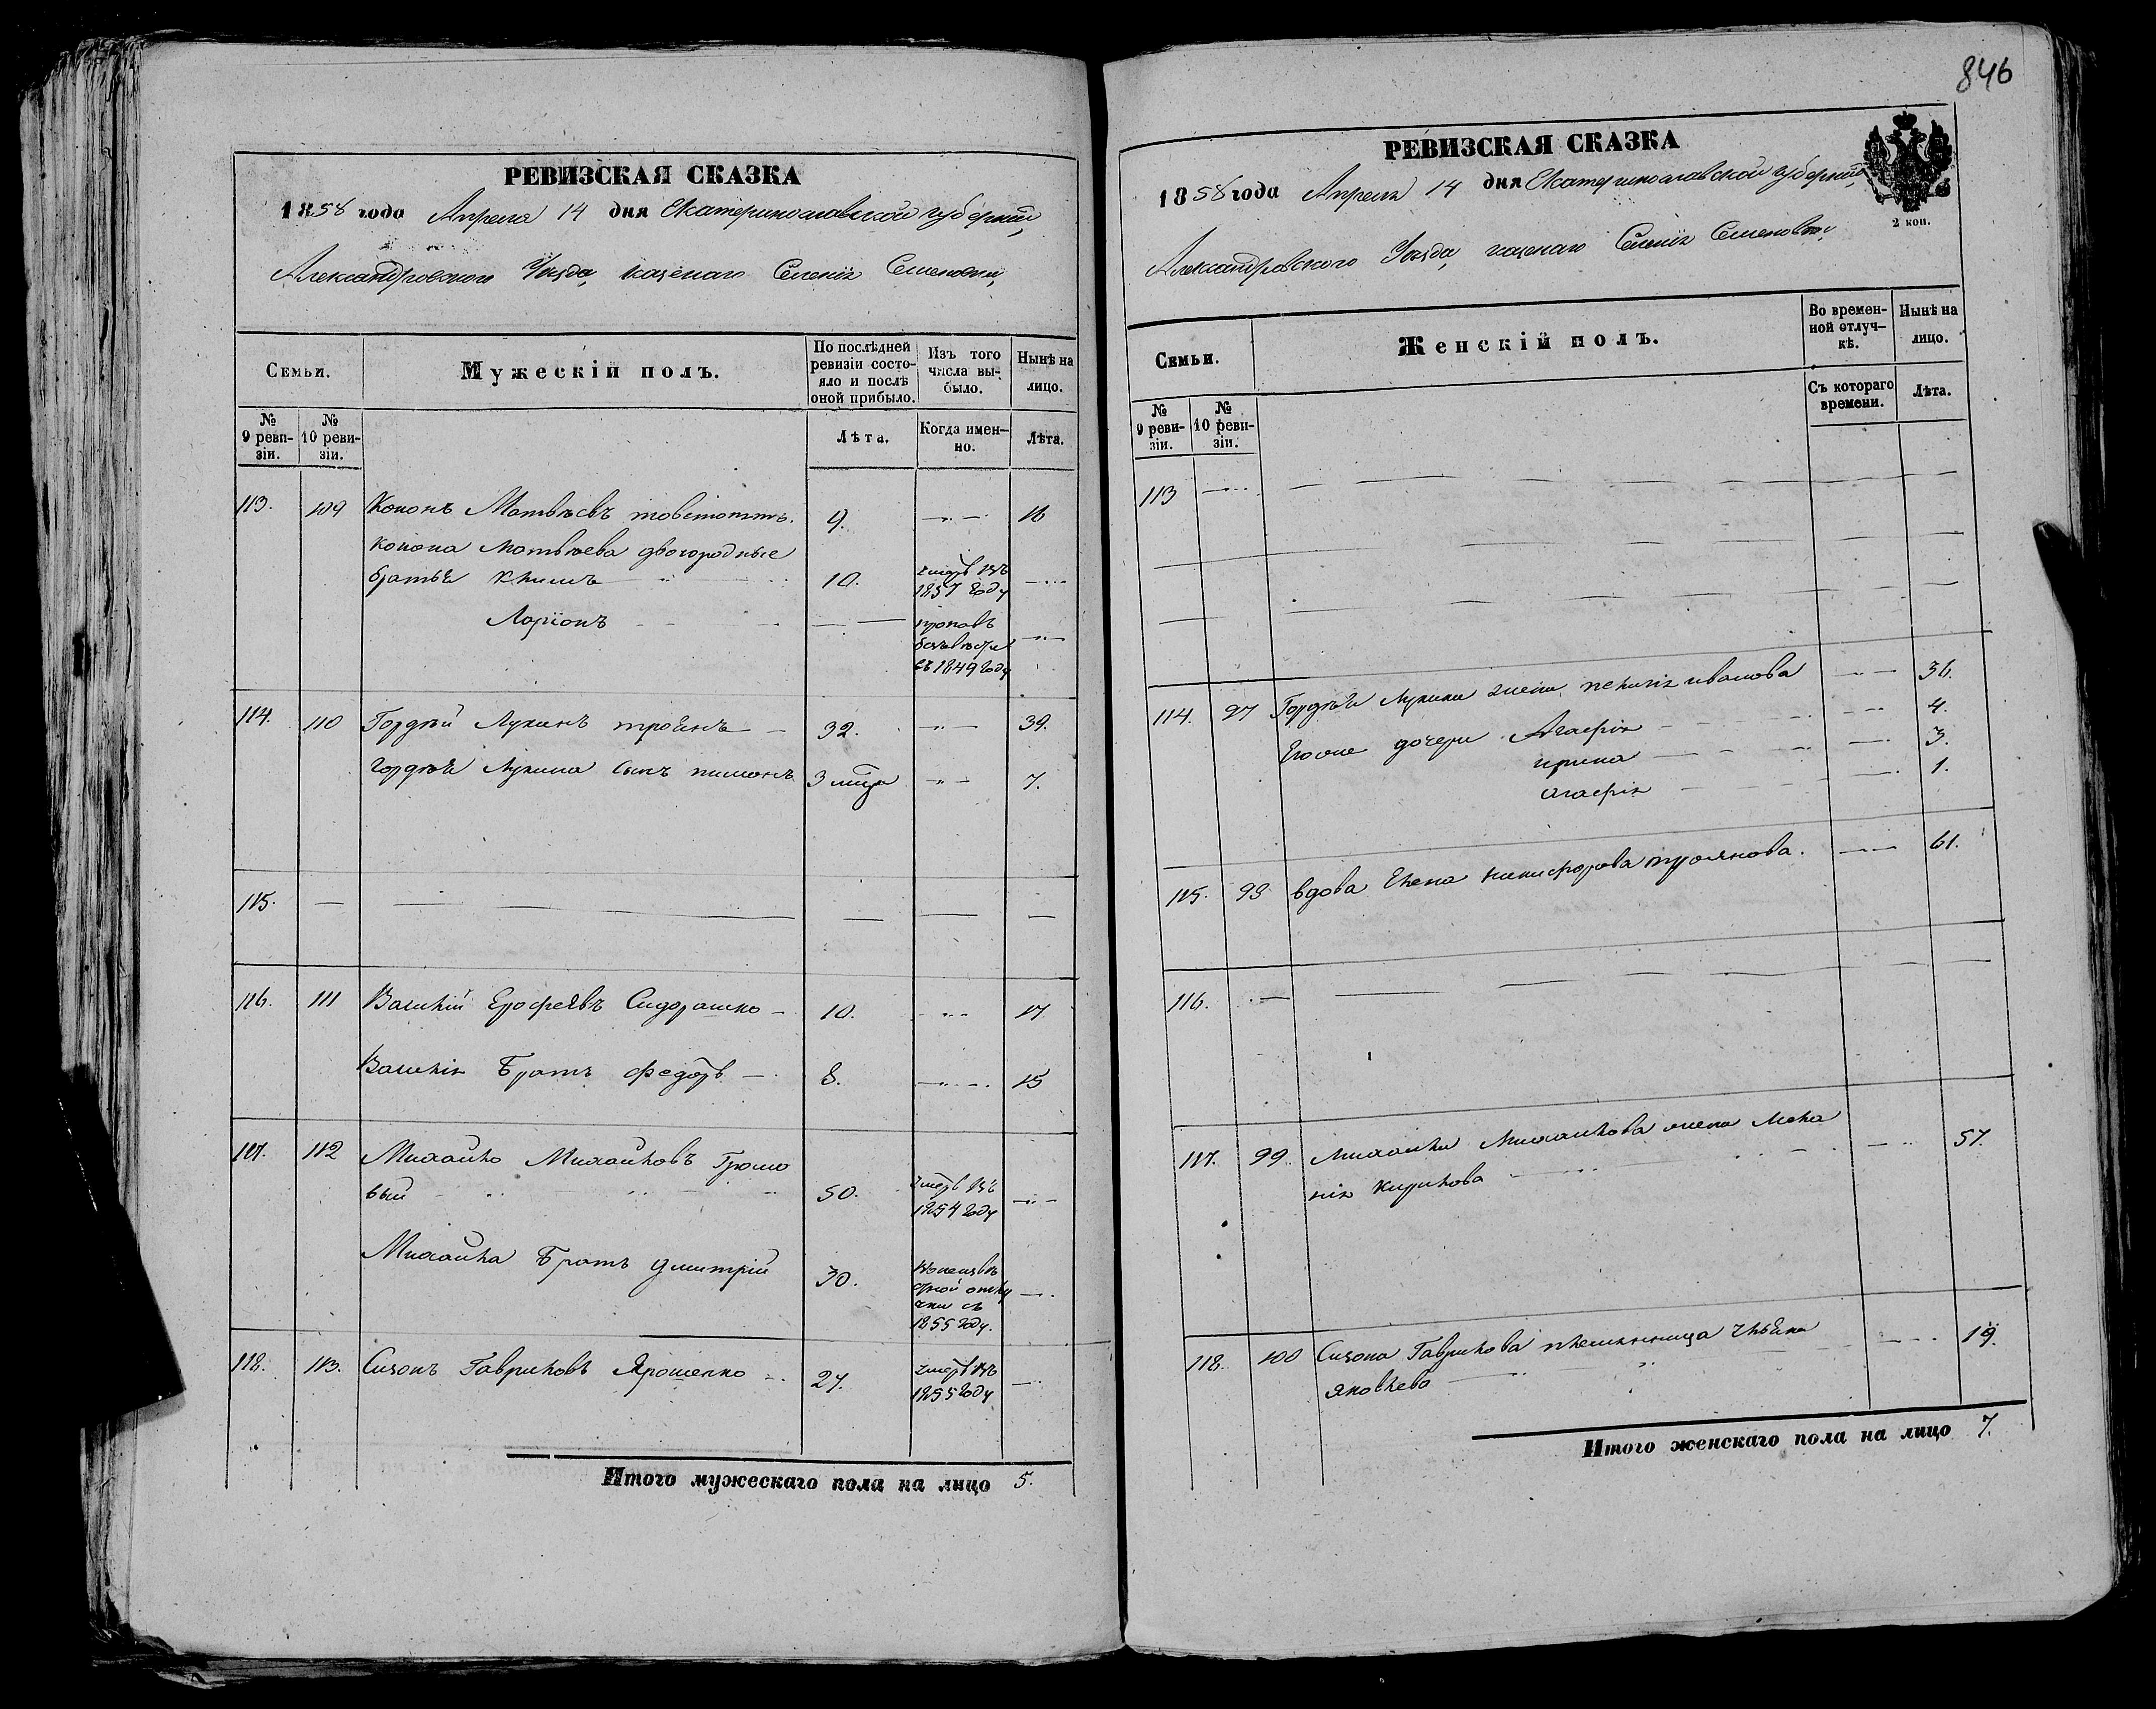 846
РЕВИЗСКАЯ СКАЗКА
1858 года Апреля 14 дня Екатеринославской губерніи,
Александровского Уѣзда, казенаго Селенія Семеновки,
Семьи.
Мужескій полъ.
По послѣдней ревизіи состояло и послѣ оной прибыло.
Изъ того числа выбыло.
Нынѣ на лицо.
№ 9 ревизіи.
№ 10 ревизіи.
Лѣта.
Когда именно.
Лѣта.
113. 109 Кононъ Матвѣевъ 9. 16
Конона Матвѣева двогородные
братья Климъ 10. умеръ въ 1857 году
Ларіонъ пропавъ безъ вѣсти въ 1849 году
114. 110 Гордѣй Лукинъ троянъ 32. 39.
Гордѣя Лукина сынъ пименъ 3 мѣся 7.
115.
116. 111 Василій Ерофеевъ Сидорашко 10. 17
Василія Братъ федоръ 8. 15
117. 112 Михайло Михайловъ Громо
вый 50. умеръ въ 1854 году
Михайла Братъ дмитрій 30. въ неизвѣстной отлучки съ 1855 году.
118. 113. Сизонъ Гавриловъ Ярошенко 27. умеръ въ 1855 году
Итого мужескаго пола на лицо 5.
РЕВИЗСКАЯ СКАЗКА
1858 года Апреля 14 дня Екатеринославской губерніи,
2 коп.
Александровского Уѣзда, казенаго Селенія Семеновки,
Семьи.
Женскій полъ.
Во временной отлучкѣ.
Нынѣ на лицо.
№ 9 ревизіи.
№ 10 ревизіи.
Съ котораго времени.
Лѣта.
113
114. 97 Гордѣя Лукина жена иванова 36.
Егоже дочери Агафія 4.
ирина 3.
агафія 1.
115. 98 вдова Елена никифорова троянова. 61.
116.
117. 99. Михайла Михайлова жена Мела
нія Кирилова 57.
118. 100 Сизона Гаврилова племянница
яковлева 19.
Итого женскаго пола на лицо 7.